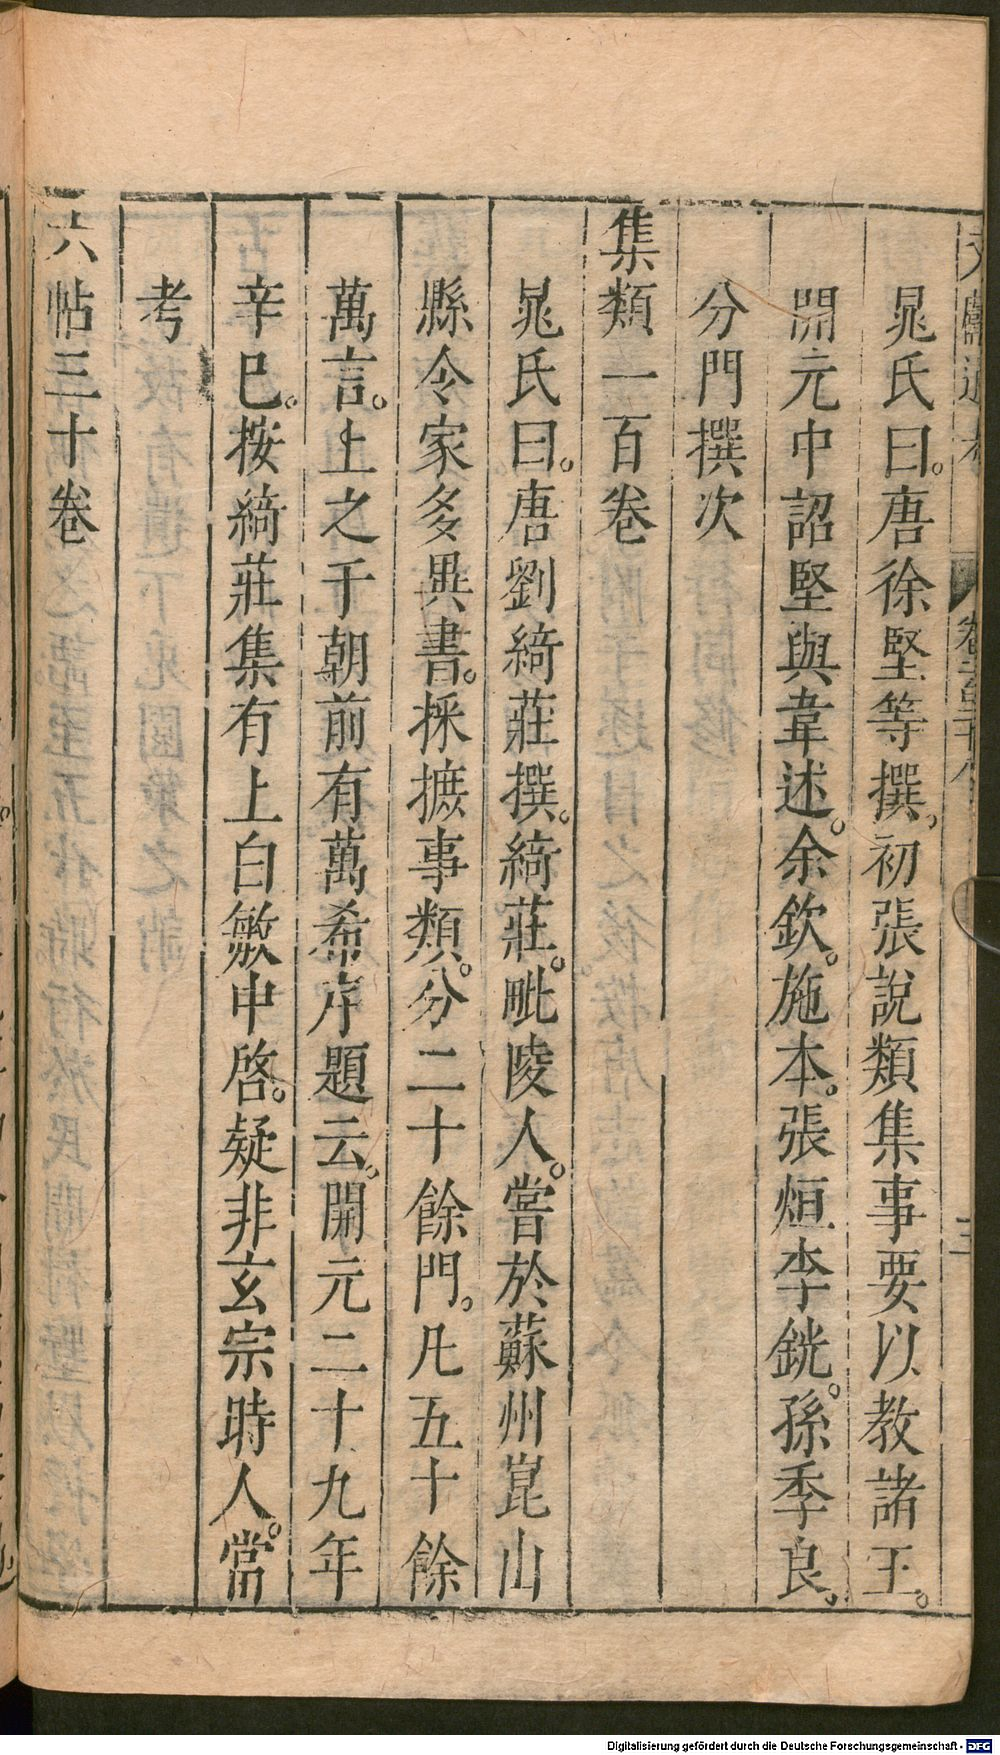 晁氏曰。唐徐堅等撰。初張說類集事要以教諸王。
開元中詔堅與韋述。余欽。施本。張烜李銑。孫季良。
分門撰次
集類一百卷
晁氏曰。唐劉綺莊撰。綺莊。毗陵人。嘗於蘇州崑山
縣令家多異書。採摭事類。分二十餘門。凡五十餘
萬言。上之于朝前有萬希序題云。開元二十九年
辛巳。按綺莊集有上白敏中啓。疑非玄宗時人。當
考
六帖三十卷
Digitalisierung gefördert durch die Deutsche Forschungsgemeinschaft - DFG